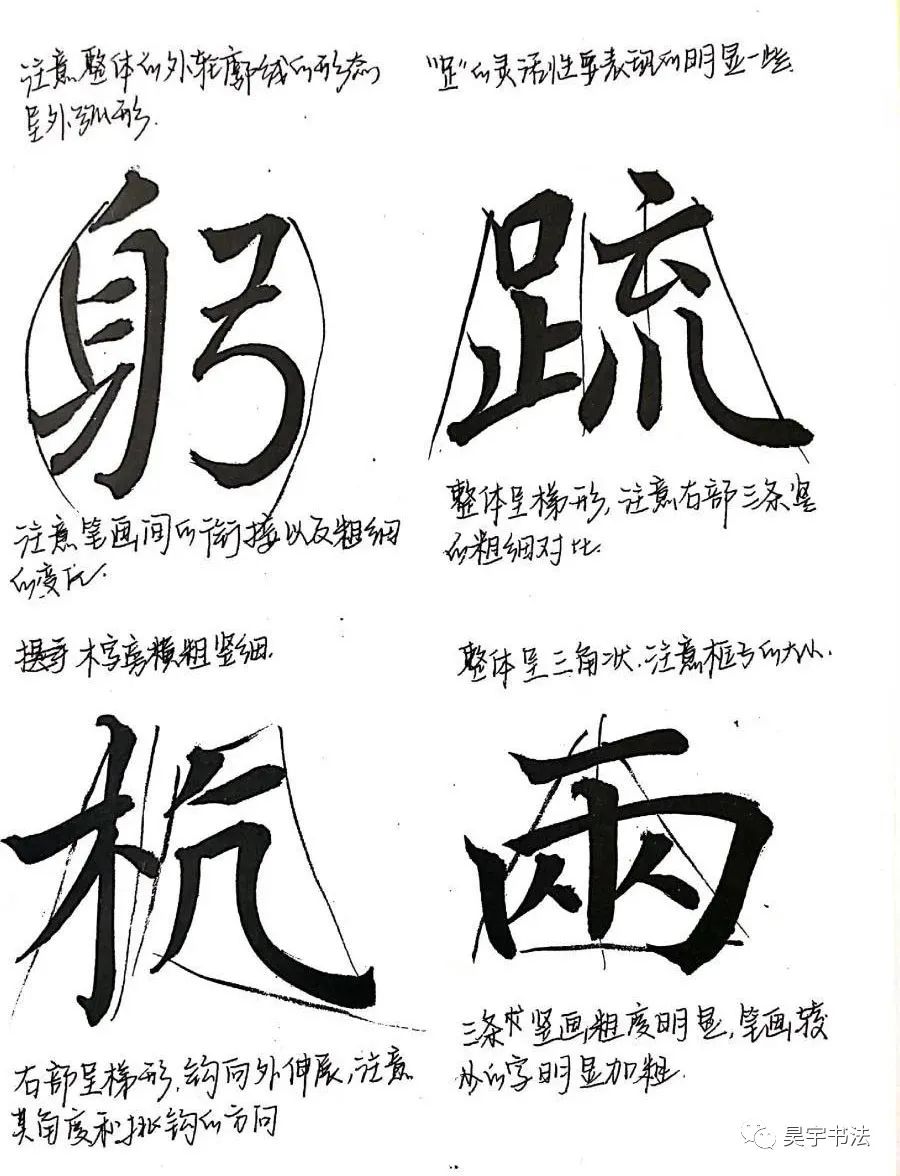 注意整体的外轮廓线的形态
呈外弧形.
躬
注意笔画间的衔接以及粗细
的变化.
"足"的灵活性要表现的明显一些.
疏
整体呈梯形,注意右部三条竖
的粗细对比.
木字旁横粗竖细.
杭
右部呈梯形,钩向外伸展,注意
其角度和挑钩的方向
整体呈三角状.注意框与的大小.
两
三条竖画粗度明显,笔画较
少的字明显加粗.
昊宇书法